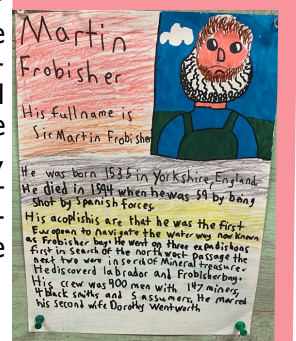 Martin
Frobisher
His fullname is
Sir Martin Frobisher
He was born 1535 in Yorkshire, England
He died in 1594 when he was 59 by being
shot by Spanish forces.
His acoplishis are that he was the first
European to navigate the water way now known
as Frobisher bay. He went on three expaditions
first in search of the northwest passage the
next two were in serd of Mineral treasure.
He discoverd labrador and Frobisher bay.
His crew was 900 men with 147 miners,
4 black smiths and 5 assumers, He marred
his second wife Dorothy Wentworth